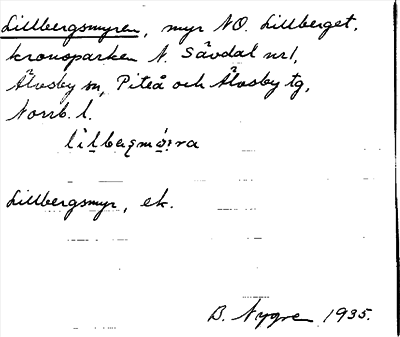 Lillbergsmyren, myr NO. Lillberget,
kronoparken N. Sävdal nr 1,
Älvsby sn, Piteå och Älvsby tg,
Norrb. l.
Lillbergsmyr, ek.
B. Nygren 1935.